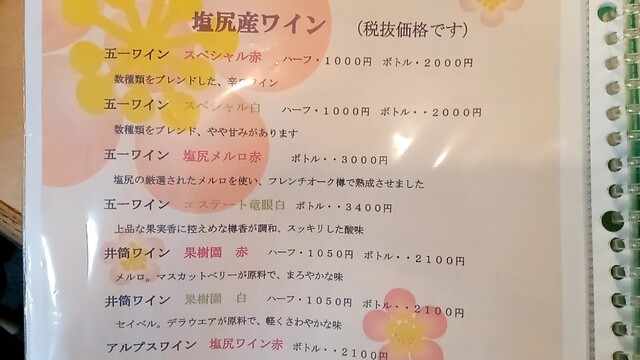 塩尻産ワイン （税抜価格です）
五一ワイン スペシャル赤 ハーフ・１０００円 ボトル・２０００円
数種類をブレンドした、辛口ワイン
五一ワイン スペシャル白 ハーフ・１０００円 ボトル・・２０００円
数種類をブレンド、やや甘みがあります
五一ワイン 塩尻メルロ赤 ボトル・・３０００円
塩尻の厳選されたメルロを使い、フレンチオーク樽で熟成させました
五一ワイン エステート竜眼白 ボトル・・３４００円
上品な果実香に控えめな樽香が調和、スッキリした酸味
井筒ワイン 果樹園 赤 ハーフ・１０５０円 ボトル・・２１００円
メルロ。マスカットベリーが原料で、まろやかな味
井筒ワイン 果樹園 白 ハーフ・１０５０円 ボトル・・２１００円
セイベル。デラウエアが原料で、軽くさわやかな味
アルプスワイン 塩尻ワイン赤 ボトル・・２１００円